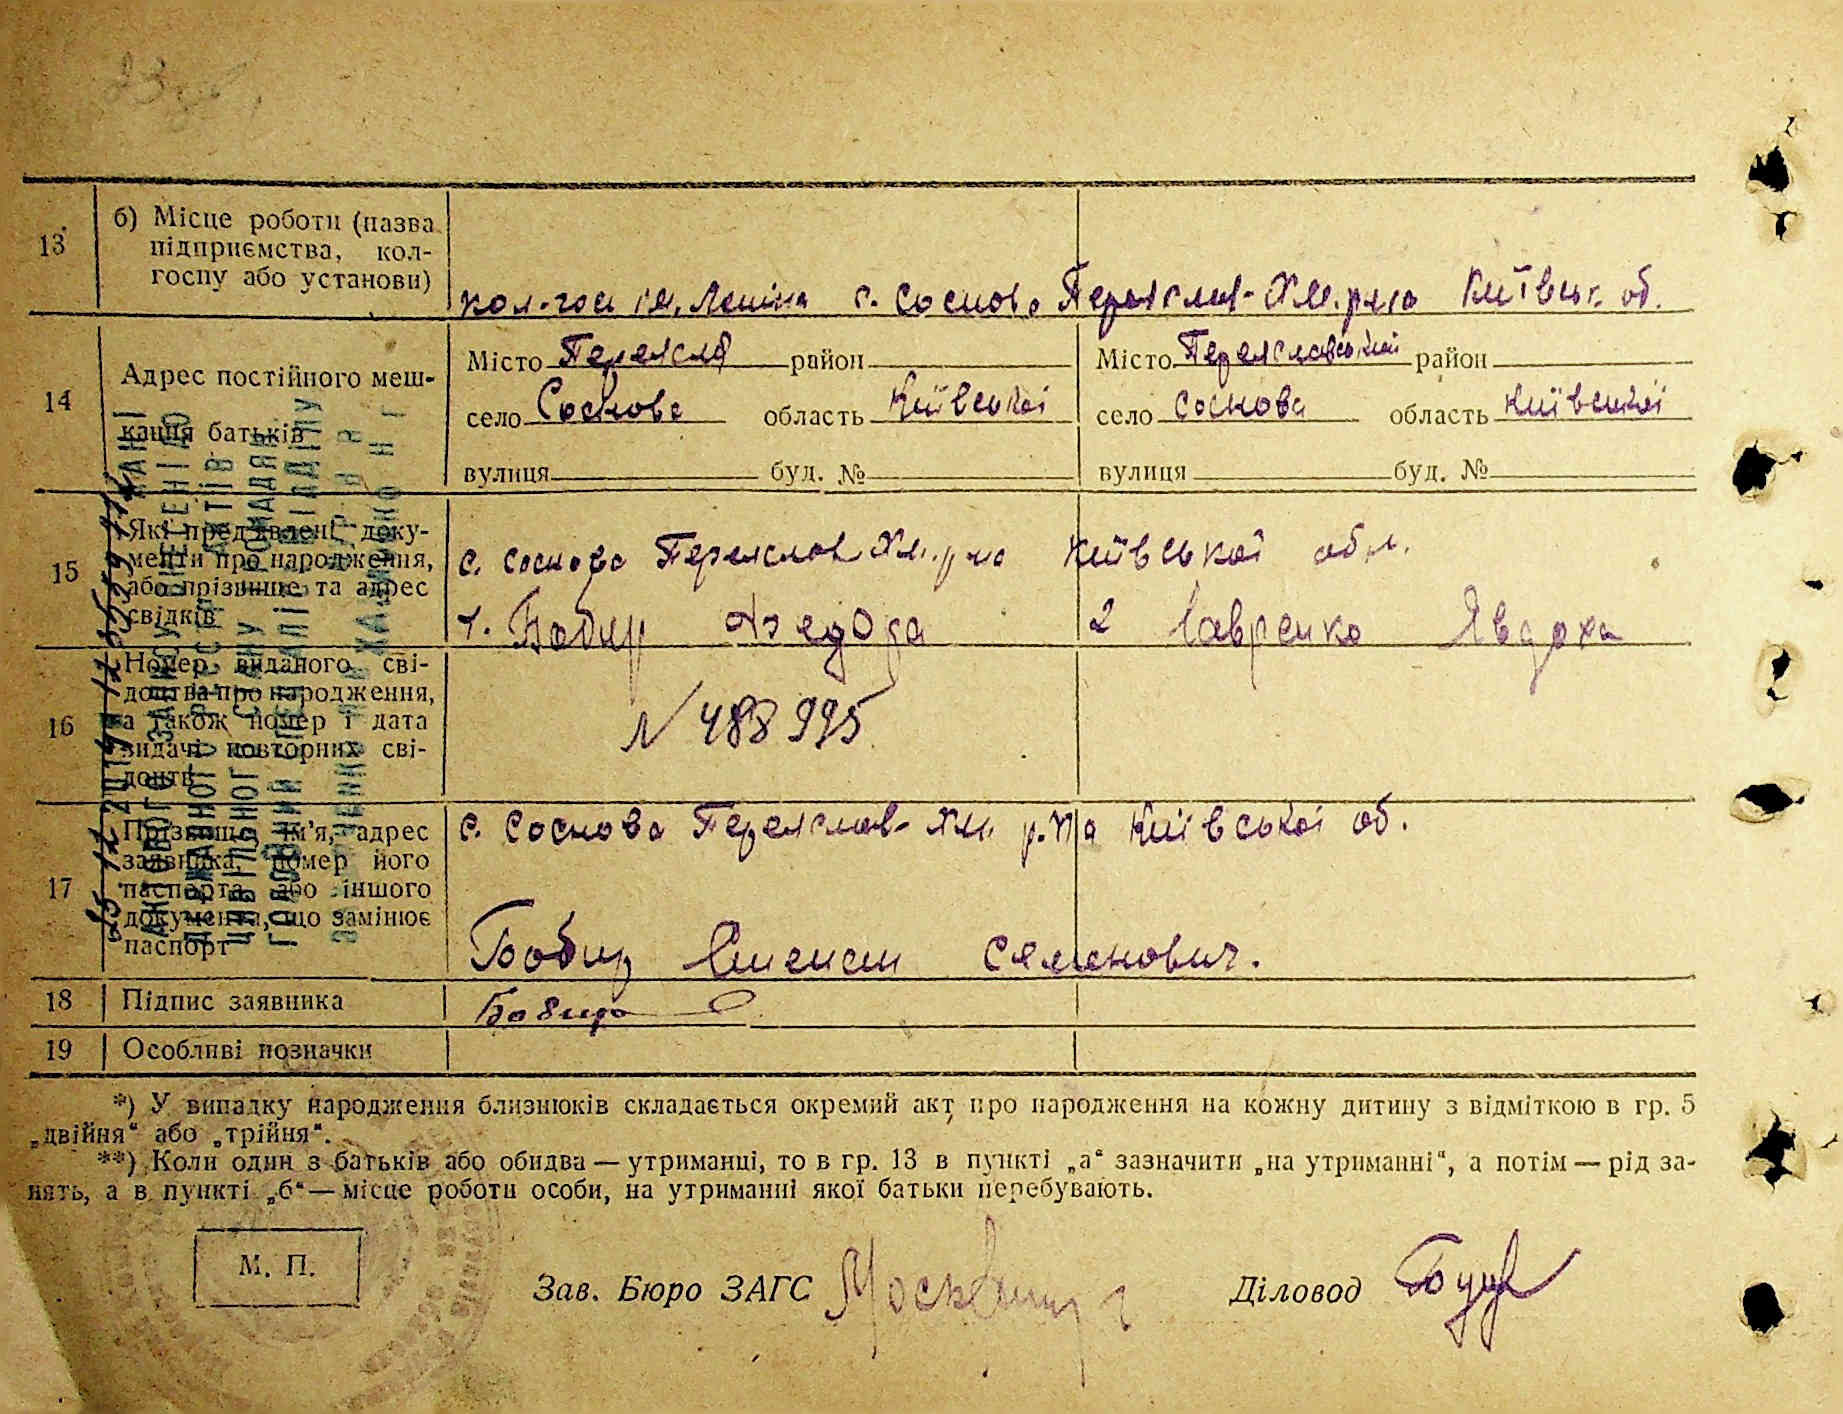 13
б) Місце роботи (назва
підприємства, кол-
госпу або установи)
кол-госп ім. Леніна с. Соснова Переяслав-Хм. р-на Київськ. об.
14
Адрес постійного меш-
кання батьків
Місто Переяслав район
село Соснова область Київської
вулиця буд. №
Місто Переяславський район
село Соснова область Київської
вулиця буд. №
15
Які пред'явлені доку-
менти про народження,
або прізвище та адрес
свідків
с. Соснова Переяслав Хм. р-на Київської обл.
1. Бобир 2 Лавренко Явдоха
16
Номер виданого сві-
доцтва про народження,
а також номер і дата
видачі повторних сві-
доцтв
№ 488995
17
Прізвище, ім'я, адрес
заявника, номер його
паспорта або іншого
документа, що замінює
паспорт
с. Соснова Переяслав-Хм. р-на Київської об.
Бобир Семенович.
18 Підпис заявника
19 Особливі позначки
*) У випадку народження близнюків складається окремий акт про народження на кожну дитину з відміткою в гр. 5
„двійня“ або „трійня“.
**) Коли один з батьків або обидва — утриманці, то в гр. 13 в пункті „а“ зазначити „на утриманні“, а потім — рід за-
нять, а в пункті „б“ — місце роботи особи, на утриманні якої батьки перебувають.
М. П.
Зав. Бюро ЗАГС
Діловод